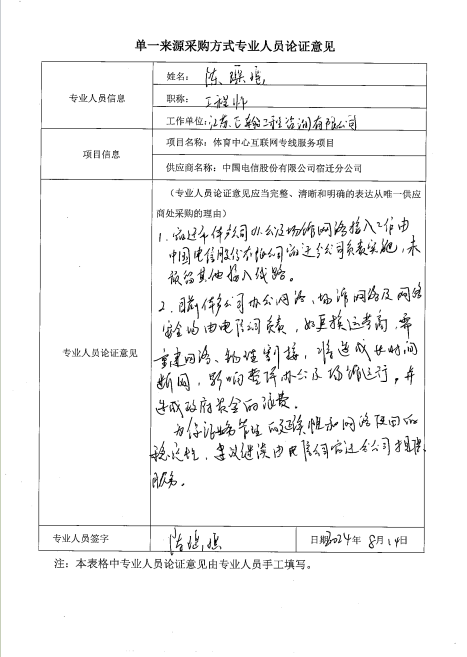 单一来源采购方式专业人员论证意见
专业人员信息
姓名：陈
职称：工程师
工作单位：江苏工程咨询有限公司
项目信息
项目名称：体育中心互联网专线服务项目
供应商名称：中国电信股份有限公司宿迁分公司
专业人员论证意见
（专业人员论证意见应当完整、清晰和明确的表达从唯一供应
商处采购的理由）
1、宿迁市体育公司办公及场馆网络接入工作由
中国电信股份有限公司宿迁分公司负责实施，未
预留其他接入线路。
2、目前体育公司办公网络、场馆网络及网络
安全均由电信公司负责，如更换运营商，需
重建网络、物理割接，将造成长时间
断网，影响整体办公及场馆运行，并
造成政府资金的浪费。
为保证业务的延续性和网络使用的
稳定性，建议继续由电信公司宿迁分公司提供
服务。
专业人员签字
日期2024年8月14日
注：本表格中专业人员论证意见由专业人员手工填写。